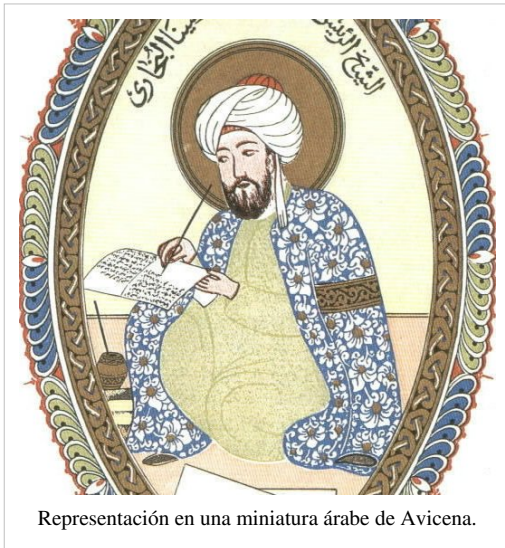 الشيخ الرئيس
البخاري
Representación en una miniatura árabe de Avicena.